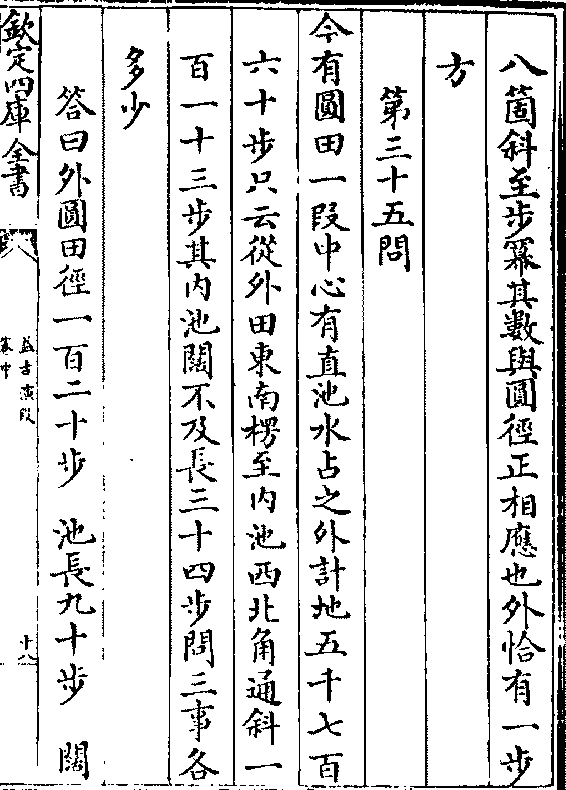 八箇斜至步冪其數與圓徑正相應也外恰有一步
方
第三十五問
今有圓田一段中心有直池水占之外計地五千七百
六十步只云從外田東南楞至内池西北角通斜一
百一十三步其内池闊不及長三十四步問三事各
多少
答曰外圓田徑一百二十步　池長九十步　闊
欽定四庫全書
益古演段
卷中
十八